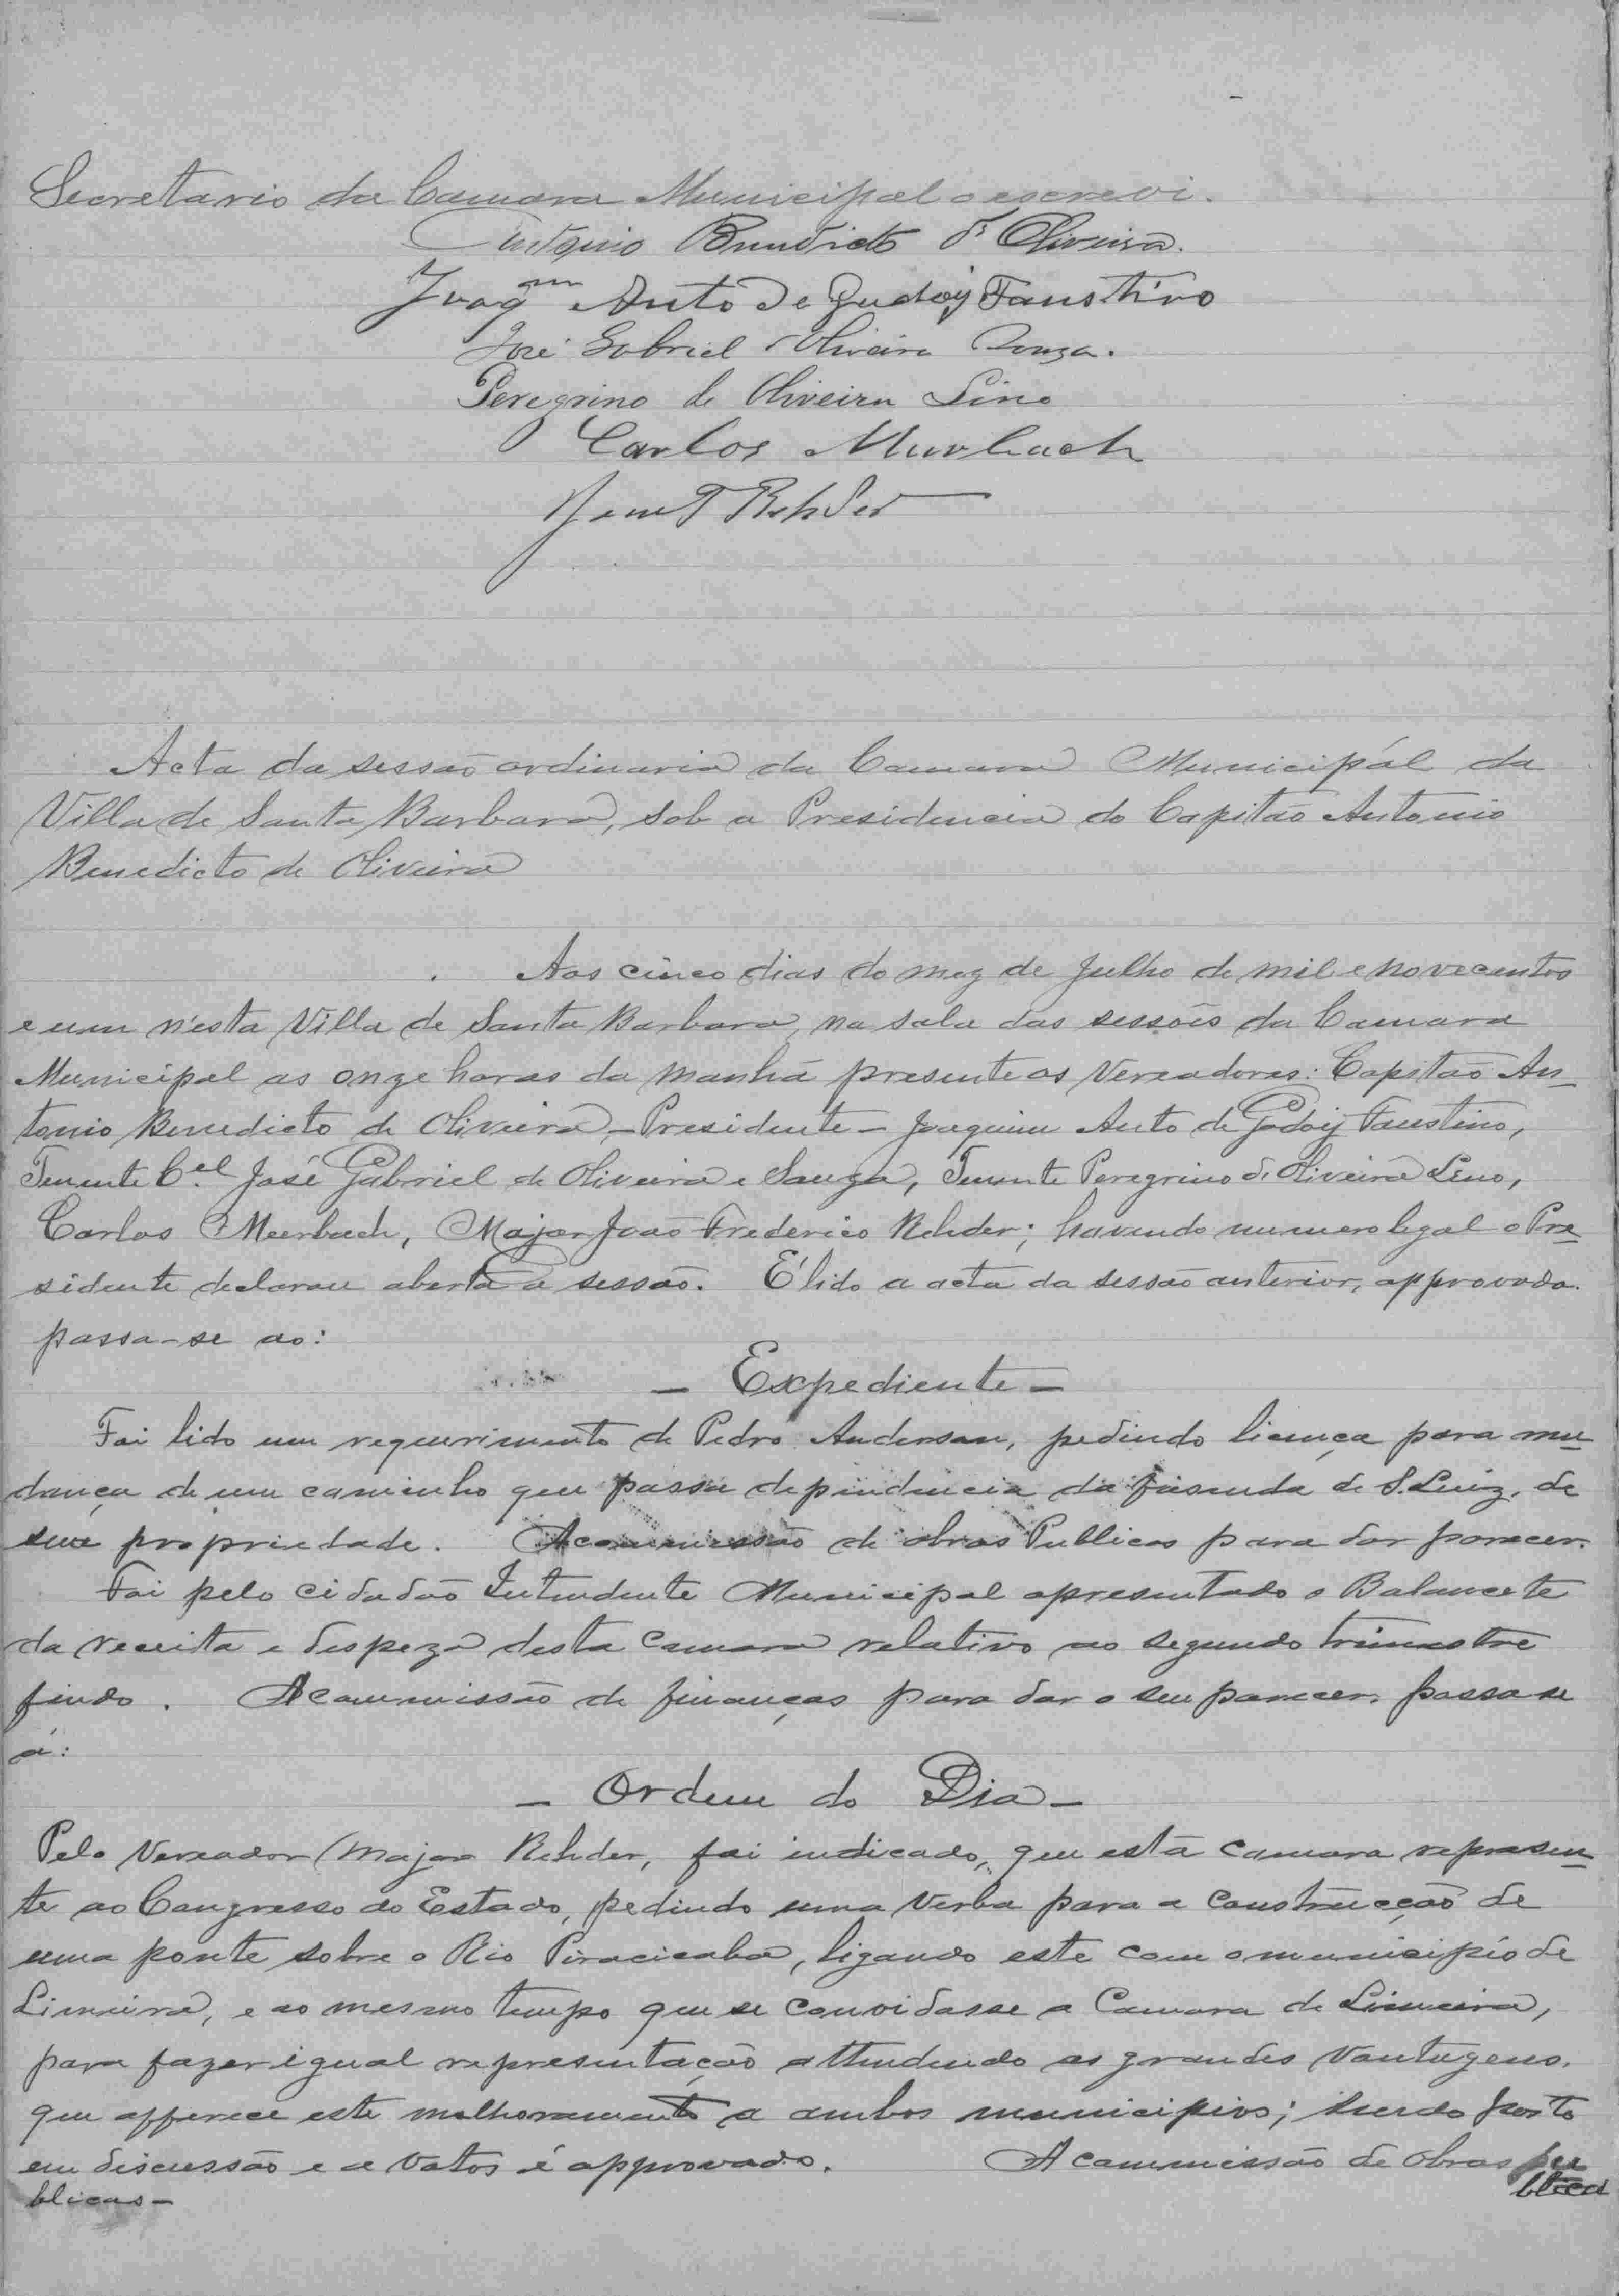 Secretario da Camara Municipal o escrevi.
Antonio Benedicto de Oliveira.
Joaqm Anto de Godoy Faustino
José Gabriel Oliveira Souza.
Peregrino de Oliveira Lino
Carlos Murbach
Rehder
Acta da sessão ordinaria da Camara Municipál da
Villa de Santa Barbara, sob a Presidencia do Capitão Antonio
Benedicto de Oliveira
Aos cinco dias do mez de Julho de mil e novecentos
e um n'esta Villa de Santa Barbara, na sala das sessões da Camara
Municipal as onze horas da manhã presente os Vereadores: Capitão An-
tonio Benedicto de Oliveira - Presidente - Joaquim Anto de Godoy Faustino,
Tenente Cel José Gabriel de Oliveira e Souza, Tenente Peregrino de Oliveira Lino,
Carlos Meerbach, Major João Frederico Rehder; havendo numero legal o Pre-
sidente declarou aberta a sessão. É lido a acta da sessão anterior, approvada.
passa-se ao:
- Expediente -
Foi lido um requerimento de Pedro Anderson, pedindo licença para mu-
dança de um caminho que passa dependencia da fasenda de S. Luiz, de
sua propriedade. A commissão de obras Publicas para dar parecer.
Foi pelo cidadão Intendente Municipal apresentado o Balancete
da receita e despeza desta Camara relativo ao segundo trimestre
findo. A commissão de finanças para dar o seu parecer. passa-se
á:
- Ordem do Dia -
Pelo Vereador Major Rehder, foi indicado, que esta camara represen-
te ao Congresso do Estado, pedindo uma verba para a construcção de
uma ponte sobre o Rio Piracicaba, ligando este com o municipio de
Limeira, e ao mesmo tempo que se convidasse a Camara de Limeira,
para fazer igual representação attendendo as grandes vantagens.
que offerece este melhoramento a ambos municipios; sendo posto
em discussão e a votos é approvado. A commissão de obras pu
blicas -
blicas